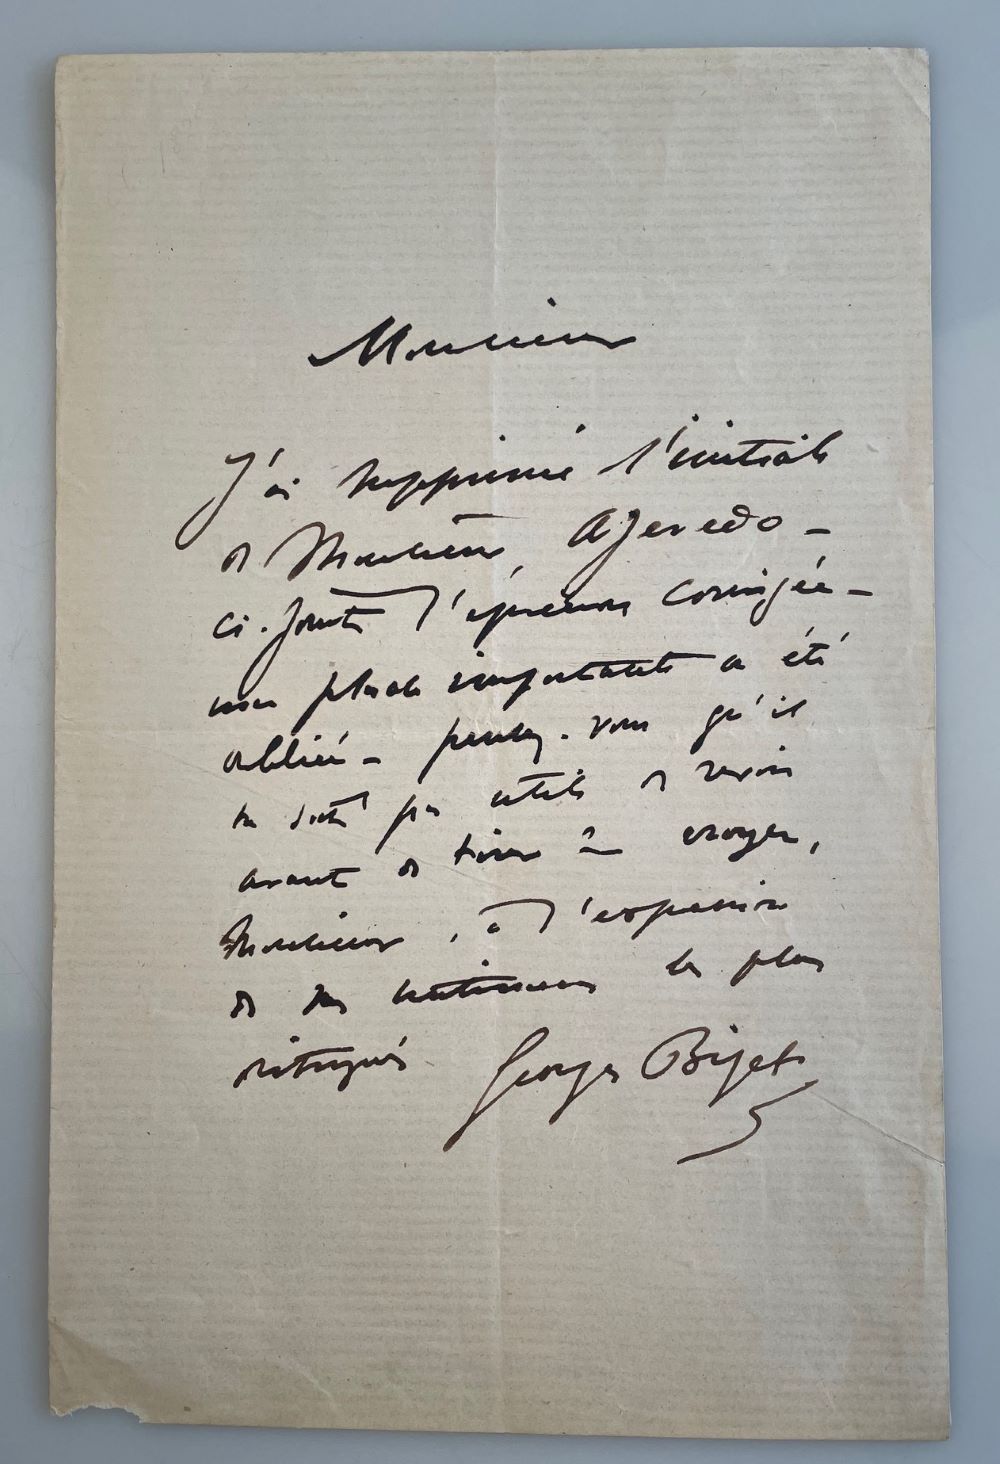 Monsieur
J'ai supprimé l'initiale
de Monsieur Azevedo –
ci-joint l'épreuve corrigée –
une phrase importante a été
oubliée – pensez-vous qu'il
ne soit pas utile de revoir
avant de tirer
Monsieur, à l'expression
de mes sentiments les plus
distingués
Georges Bizet